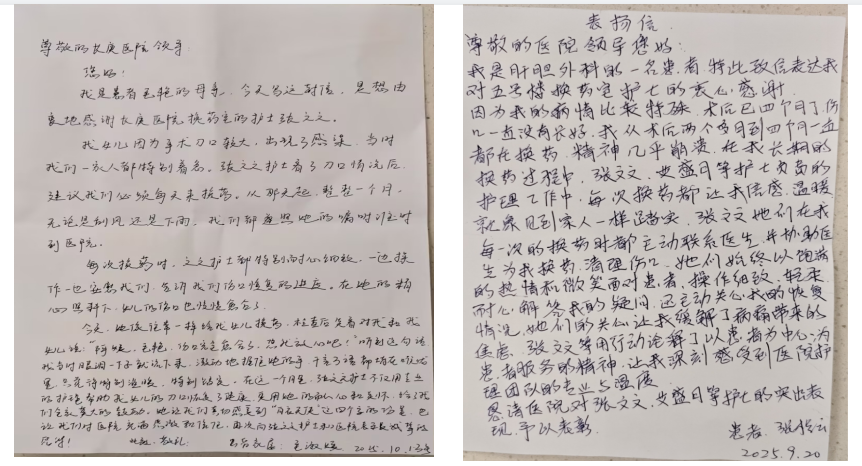 尊敬的长庚医院领导
您好!
我是患者毛艳的母亲,今天写这封信,是想由
衷地感谢长庚医院换药室的护士张文文。
我女儿因为手术刀口较大,出现了感染,当时
我们一家人都特别着急。张文文护士看了刀口情况后,
建议我们必须每天来换药。从那天起,整整一个月,
无论是刮风还是下雨,我们都遵照她的嘱咐准时
到医院。
每次换药时,文文护士都特别耐心细致,一边操
作一边安慰我们,告诉我们伤口恢复的进度。在她的精
心照料下,女儿的伤口也慢慢愈合了。
今天,她像往常一样给我女儿换药,检查后笑着对我和我
女儿说:"阿姨,毛艳,伤口完全愈合了,您就放心吧!"听到这句话
我当时眼泪一下子就流下来,激动地握住她的手,千言万语都
特别踏实。在这一个月里,张文文护士不仅用专业
的护理帮助我女儿的刀口恢复了健康,更用她的耐心和关怀,给了我
们全家莫大的鼓励。她让我们真切感受到"白衣天使"这四个字的份量,也
让我们对医院充满感激和信任。再次向张文文护士和医院
此致,敬礼!
2025.10.13
表扬信
尊敬的医院领导您好:
我是肝胆外科的一名患者,特此致信表达我
对五号楼换药室护士的衷心感谢
因为我的病情比较特殊,术后已四个月了,伤
口一直没有长好,我从术后两个多月到四个月一直
都在换药,精神几乎崩溃,在我长期的
换药过程中,张文文,史盛日等护士负责的
护理工作中,每次换药都让我倍感温暖
就象见到家人一样踏实,张文文她们在我
每一次的换药时都主动联系医生,并协助医
生为我换药,清理伤口,她们始终以饱满
的热情和微笑面对患者,操作细致,轻柔
耐心解答我的疑问,还主动关心我的恢复
情况,她们的关心让我缓解了病痛带来的
焦虑,张文文等用行动诠释了以患者为中心,为
患者服务的精神,让我深刻感受到医院护
理团队的专业与温度
恳请医院对张文文,史盛日等护士的突出表
现,予以表彰.
患者:
2025.9.20